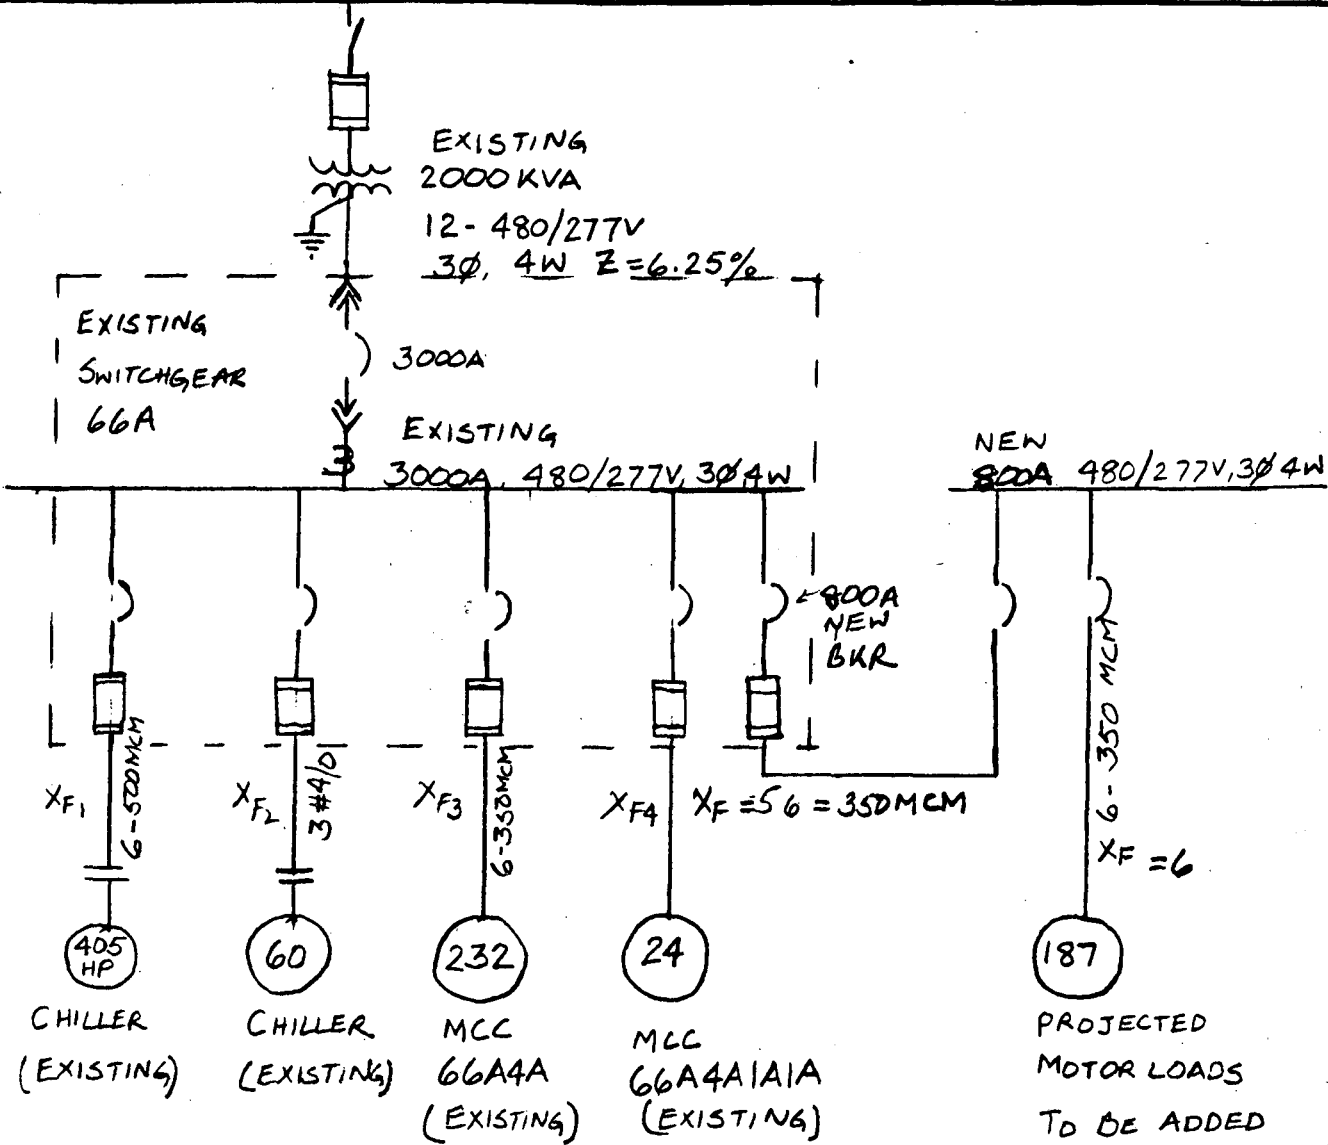 EXISTING
2000 KVA
12-480/277V
3Ø, 4W Z=6.25%
EXISTING
SWITCHGEAR
66A
3000A
EXISTING
3000A, 480/277V, 3Ø4W
NEW
800A 480/277V, 3Ø4W
800A
NEW
BKR
XF1
6-500MCM
XF2
3#4/0
XF3
6-350MCM
XF4
XF =56 = 350MCM
6-350 MCM
XF =6
405
HP
60
232
24
187
CHILLER
(EXISTING)
CHILLER
(EXISTING)
MCC
66A4A
(EXISTING)
MCC
66A4A1A1A
(EXISTING)
PROJECTED
MOTOR LOADS
TO BE ADDED